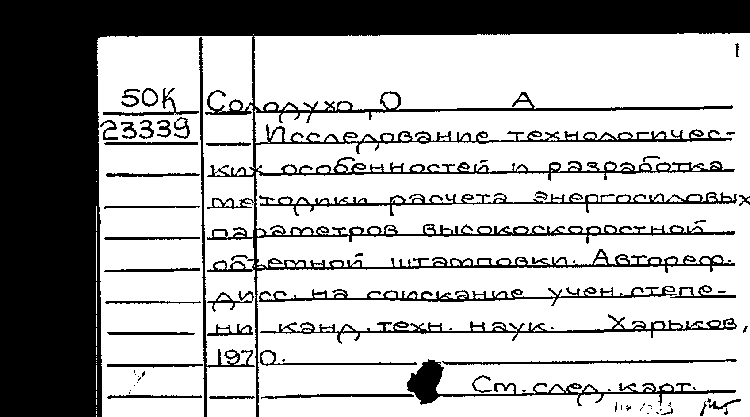 1
50К Солодухо, О А
23339 Исследование технологичес-
ких особенностей и разработка
методики расчета энергосиловых
параметров высокоскоростной
объемной штамповки. Автореф.
дисс. на соискание учен. степе-
ни канд. техн. наук. Харьков,
1970.
См. след. карт.